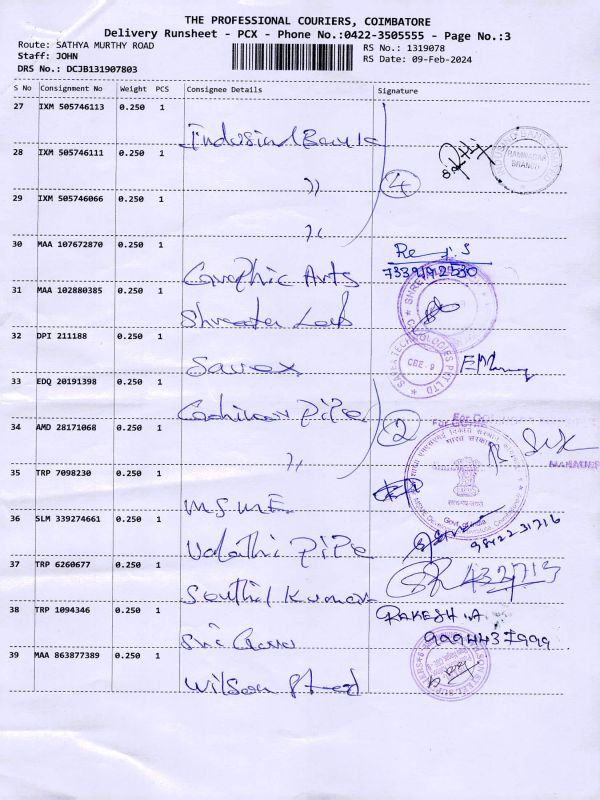 THE PROFESSIONAL COURIERS, COIMBATORE
Delivery Runsheet - PCX - Phone No.:0422-3505555 - Page No.:3
Route: SATHYA MURTHY ROAD
RS No.: 1319078
Staff: JOHN
RS Date: 09-Feb-2024
DRS No.: DCJB131907803
S No Consignment No Weight PCS Consignee Details Signature
27 IXM 505746113 0.250 1
IndusInd Bank
28 IXM 505746111 0.250 1
RAMNAGAR
BRANCH
")
4
29 IXM 505746066 0.250 1
")
30 MAA 107672870 0.250 1
Graphic Arts
31 MAA 102880385 0.250 1
32 DPI 211188 0.250 1
CBE - 9
Savex
33 EDQ 20191398 0.250 1
Pipe
2
34 AMD 28171068 0.250 1
भारत सरकार
MANAGER
")
35 TRP 7098230 0.250 1
MSME
Govt. of India
36 SLM 339274661 0.250 1
98422 31716
Pipe
37 TRP 6260677 0.250 1
Senthil Kumar
38 TRP 1094346 0.250 1
RAKESH .A
Sri
39 MAA 863877389 0.250 1
Wilson